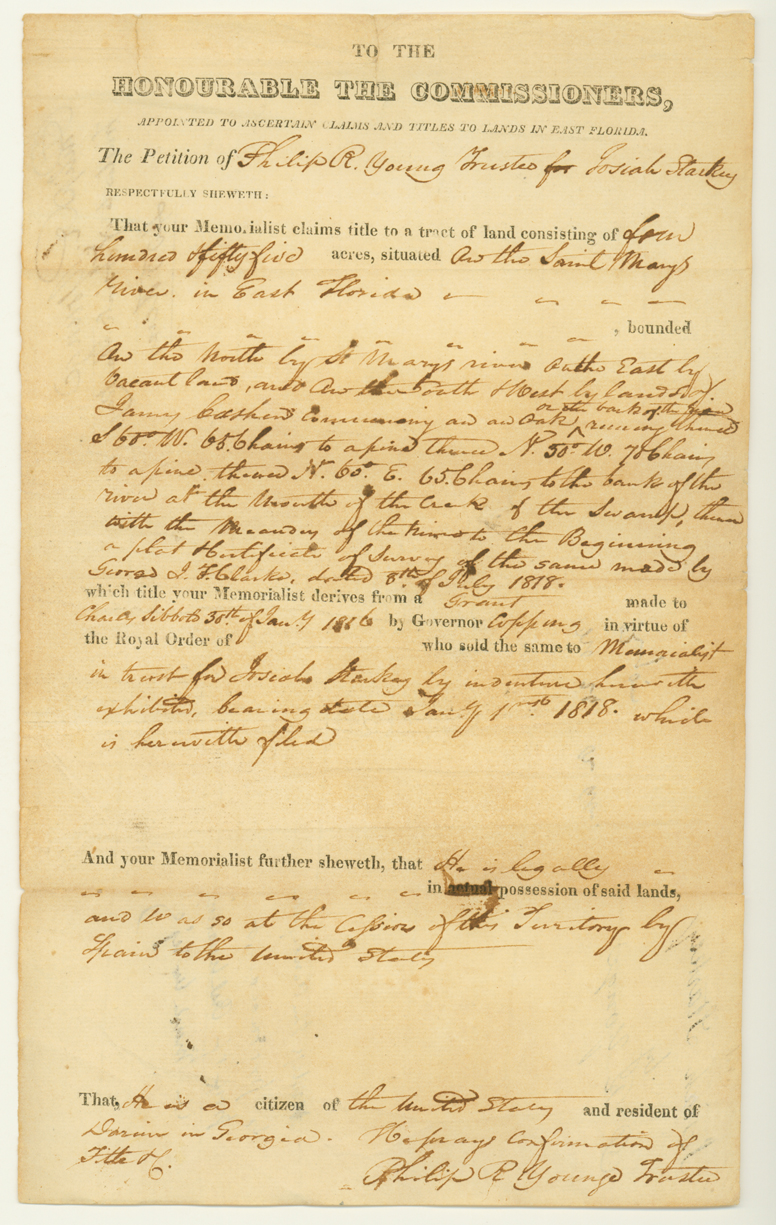 TO THE
HONOURABLE THE COMMISSIONERS,
APPOINTED TO ASCERTAIN CLAIMS AND TITLES TO LANDS IN EAST FLORIDA.
The Petition of Philip R. Young Trustee for Josiah Starkey
RESPECTFULLY SHEWETH:
That your Memorialist claims title to a tract of land consisting of four
hundred & fifty five acres, situated On the Saint Marys
river in East Florida
, bounded
On the North by St Marys river On the East by
Vacant land, and On the South & West by lands of
James Cashen Commencing on an Oak, running thence
on the bank of the
S 60° W. 65 Chains to a pine thence N. 50° W. 70 Chains
to a pine. thence N. 60° E. 65 Chains to the bank of the
river at the Mouth of the Creek of the Swamp, thence
with the Meanders of the river to the Beginning
a plat & Certificate of Survey of the same made by
George J. F. Clarke, dated 8th of July 1818.
which title your Memorialist derives from a Grant made to
Charles Sibbald 30th of Jany 1816 by Governor Copping in virtue of
the Royal Order of who sold the same to Memorialist
in trust for Josiah Starkey by indenture herewith
exhibited, bearing date Jany 1st 1818. which
is herewith filed
And your Memorialist further sheweth, that He is legally
in actual possession of said lands,
and was so at the Cession of this Territory by
Spain to the United States
That, He is a citizen of the United States and resident of
Darien in Georgia. He prays Confirmation of
Title &c.
Philip R Younge Trustee